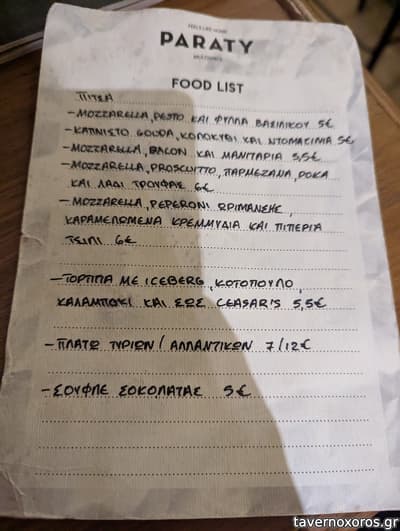 FEELS LIKE HOME
PARATY
FOOD LIST
ΠΙΤΣΑ
- MOZZARELLA, PESTO ΚΑΙ ΦΥΛΛΑ ΒΑΣΙΛΙΚΟΥ 5€
- ΚΑΠΝΙΣΤΟ GOUDA, ΚΟΛΟΚΥΘΙ ΚΑΙ ΝΤΟΜΑΤΙΝΙΑ 5€
- MOZZARELLA, BACON ΚΑΙ ΜΑΝΙΤΑΡΙΑ 5,5€
- MOZZARELLA, PROSCIUTTO, ΠΑΡΜΕΖΑΝΑ, ΡΟΚΑ
ΚΑΙ ΛΑΔΙ ΤΡΟΥΦΑΣ 6€
- MOZZARELLA, PEPERONI ΩΡΙΜΑΝΣΗΣ,
ΚΑΡΑΜΕΛΩΜΕΝΑ ΚΡΕΜΜΥΔΙΑ ΚΑΙ ΠΙΠΕΡΙΑ
ΤΣΙΛΙ 6€
- ΤΟΡΤΙΓΙΑ ΜΕ ICEBERG, ΚΟΤΟΠΟΥΛΟ,
ΚΑΛΑΜΠΟΚΙ ΚΑΙ ΣΩΣ CEASAR'S 5,5€
- ΠΛΑΤΩ ΤΥΡΙΩΝ / ΑΛΛΑΝΤΙΚΩΝ 7/12€
- ΣΟΥΦΛΕ ΣΟΚΟΛΑΤΑΣ 5€
tavernoxoros.gr